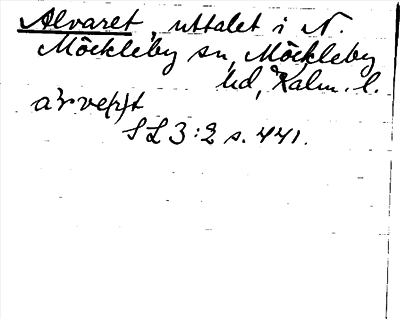 Alvaret, uttalet i N.
Möckleby sn, Möckleby
hd, Kalm. l.
a³rve(r)t
SL 3:2 s. 441.